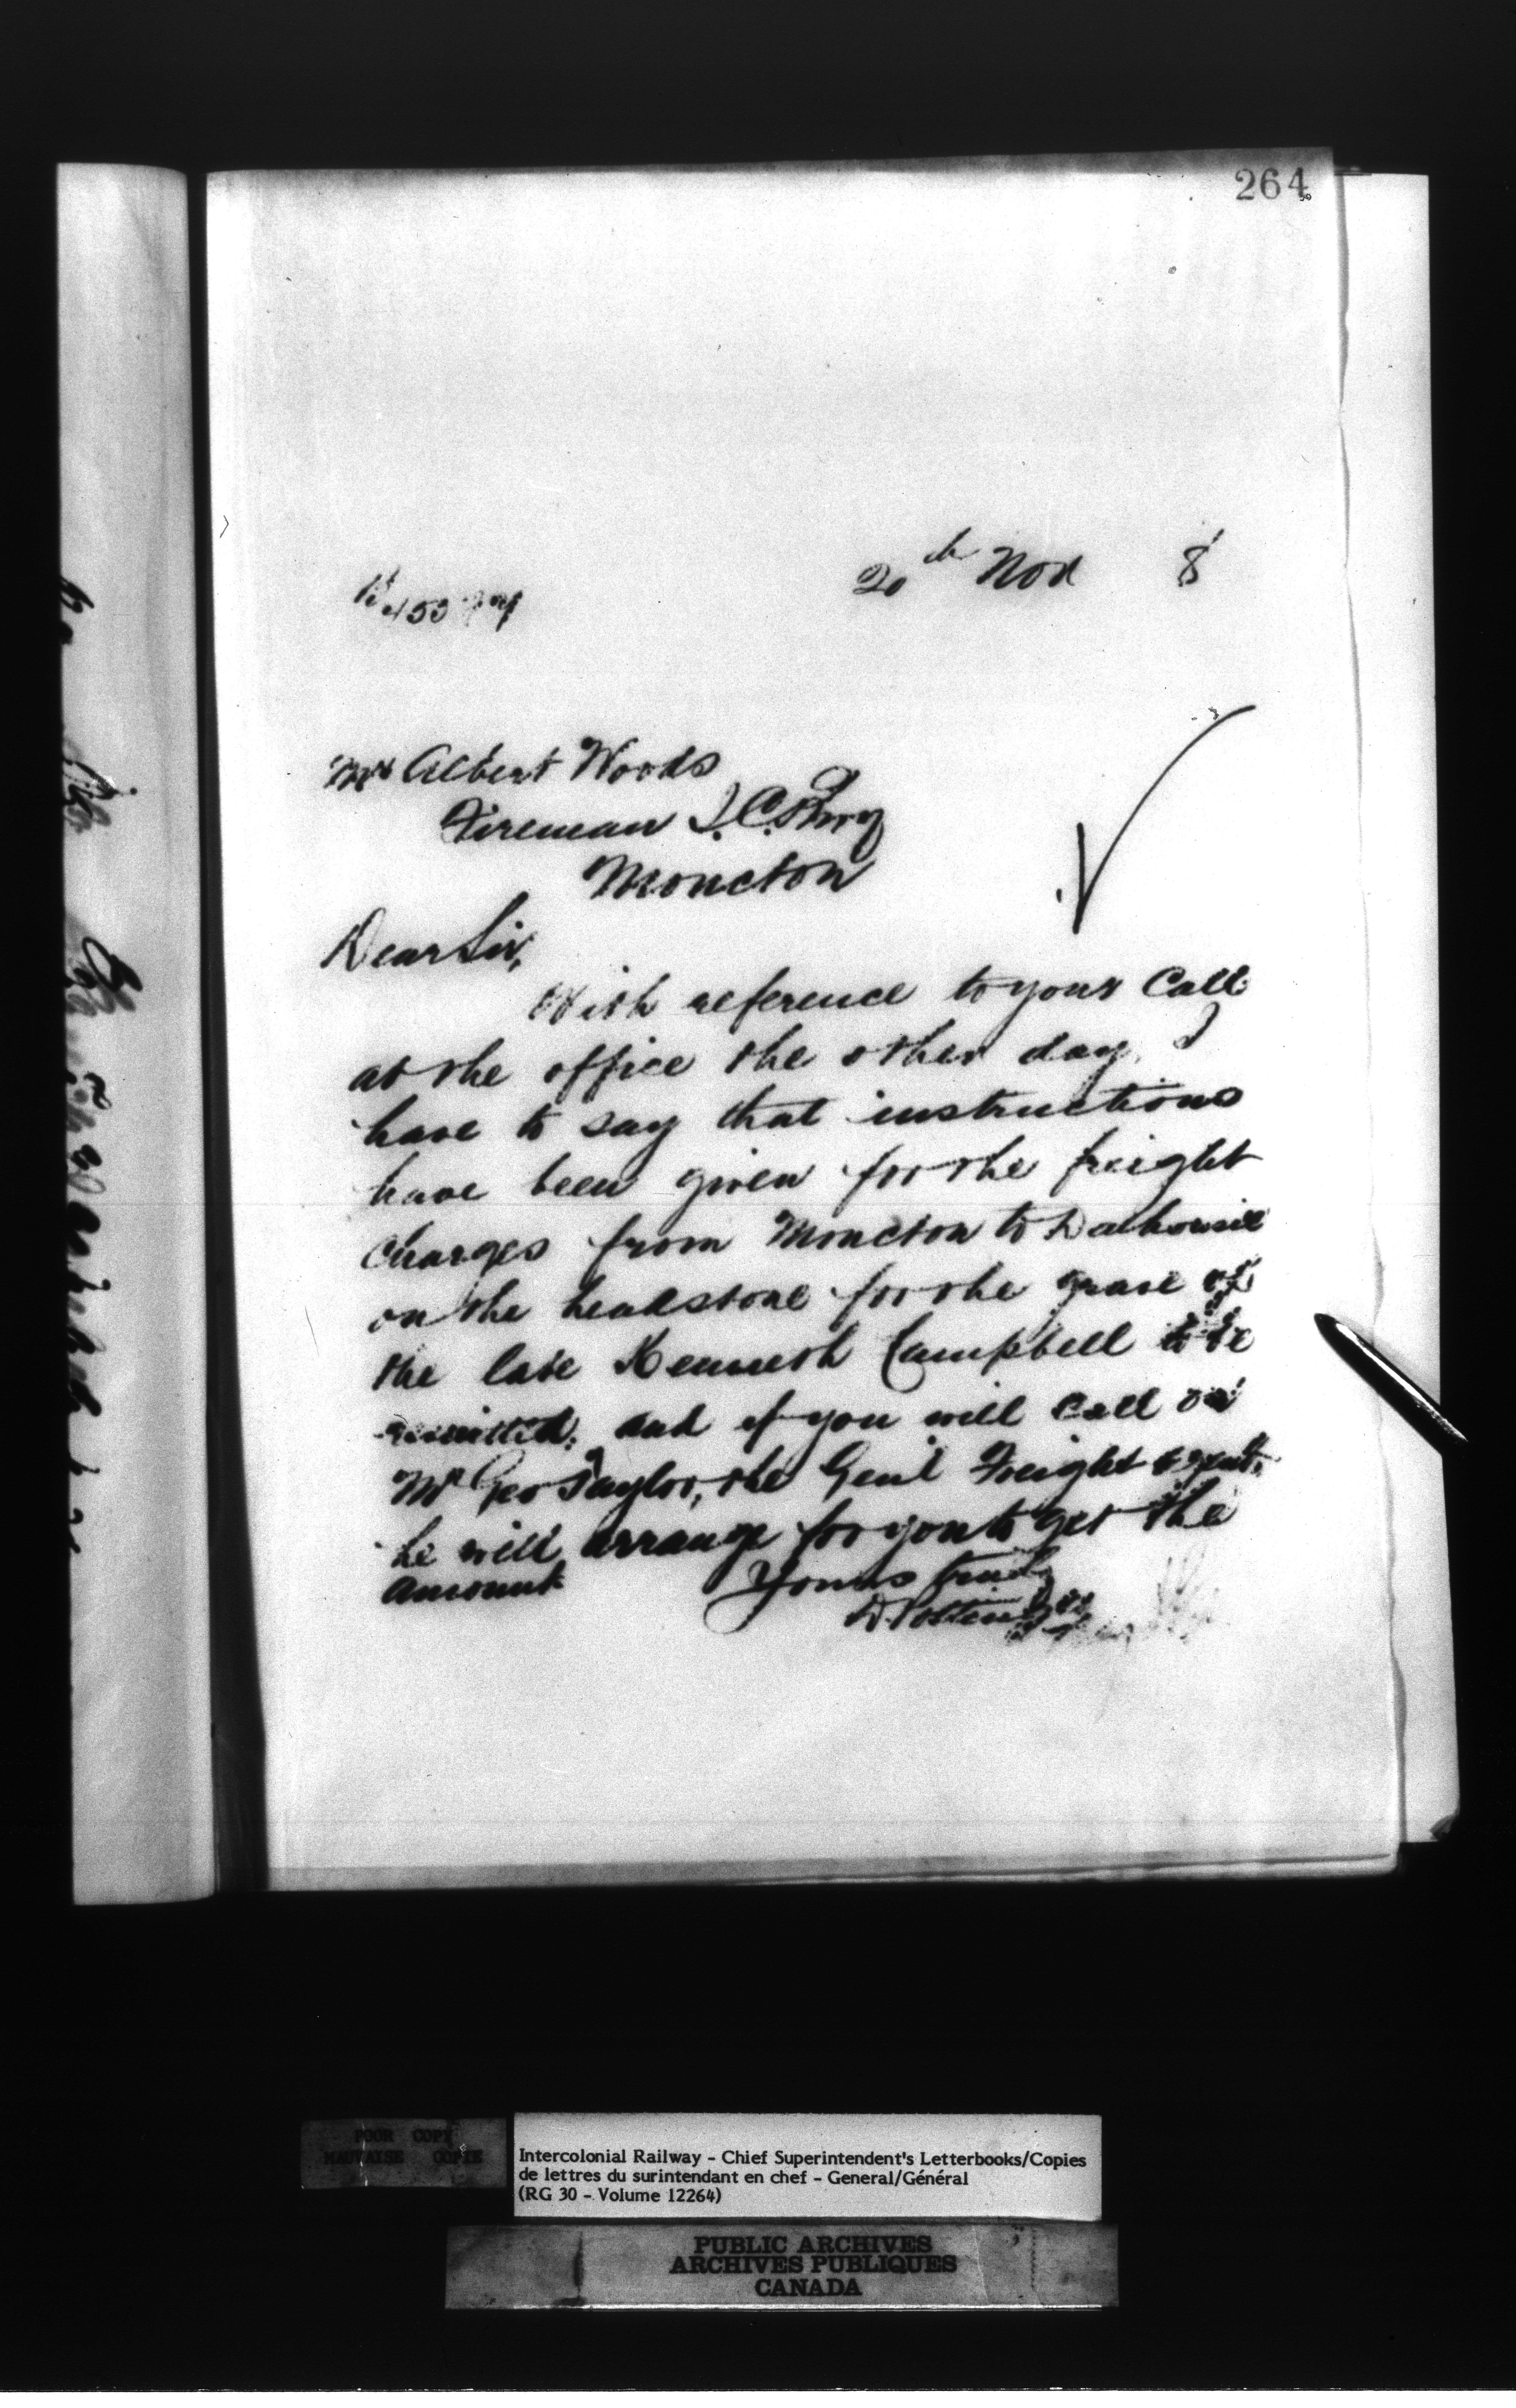 264
20th Nov 8
Mr Albert Woods
Fireman I.C. Rwy
Moncton
Dear Sir,
With reference to your Call
at the office the other day, I
have to say that instructions
have been given for the freight
charges from Moncton to Dalhousie
on the headstone for the grave of
the late Kenneth Campbell to be
remitted, and if you will call on
Mr Geo Taylor, the Genl Freight agent,
he will arrange for you to get the
amount
Yours truly
D. Pottinger
POOR COPY
MAUVAISE COPIE
Intercolonial Railway - Chief Superintendent's Letterbooks/Copies
de lettres du surintendant en chef - General/Général
(RG 30 - Volume 12264)
PUBLIC ARCHIVES
ARCHIVES PUBLIQUES
CANADA